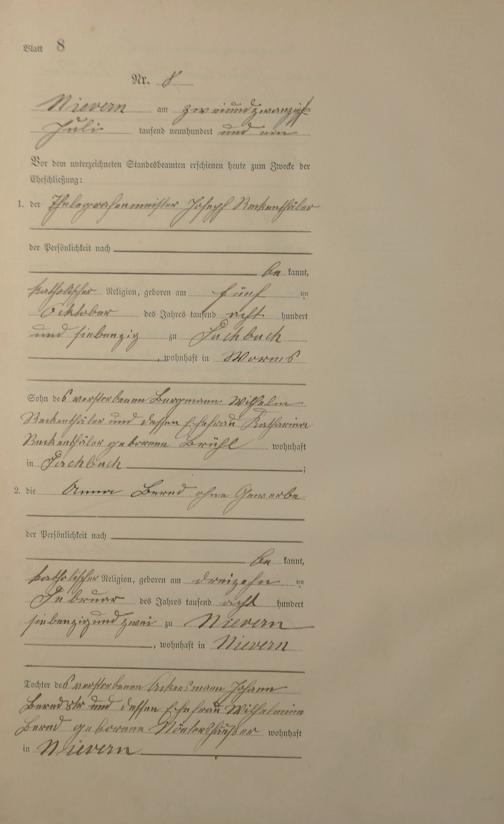 Blatt 8
Nr. 8
Nievern am zweiundzwanzigsten
Juli tausend neunhundert und ein
Vor dem unterzeichneten Standesbeamten erschienen heute zum Zwecke der
Eheschließung:
1. der Thelegrafenmeister Joseph Reckenthäler
der Persönlichkeit nach
be kannt,
katholischer Religion, geboren am fünf ten
Oktober des Jahres tausend acht hundert
und siebenzig zu Fachbach
, wohnhaft in Worms
Sohn des verstorbenen Bergmann Wilhelm
Reckenthäler und dessen Ehefrau Katharina
Reckenthäler geborene Brühl wohnhaft
in Fachbach ;
2. die Anna Bernd ohne Gewerbe
der Persönlichkeit nach
be kannt,
katholischer Religion, geboren am dreizehn ten
Februar des Jahres tausend acht hundert
siebenzigundzwei zu Nievern
, wohnhaft in Nievern
Tochter des verstorbenen Ackersmann Johann
Bernd und dessen Ehefrau Wilhelmine
Bernd geborene wohnhaft
in Nievern